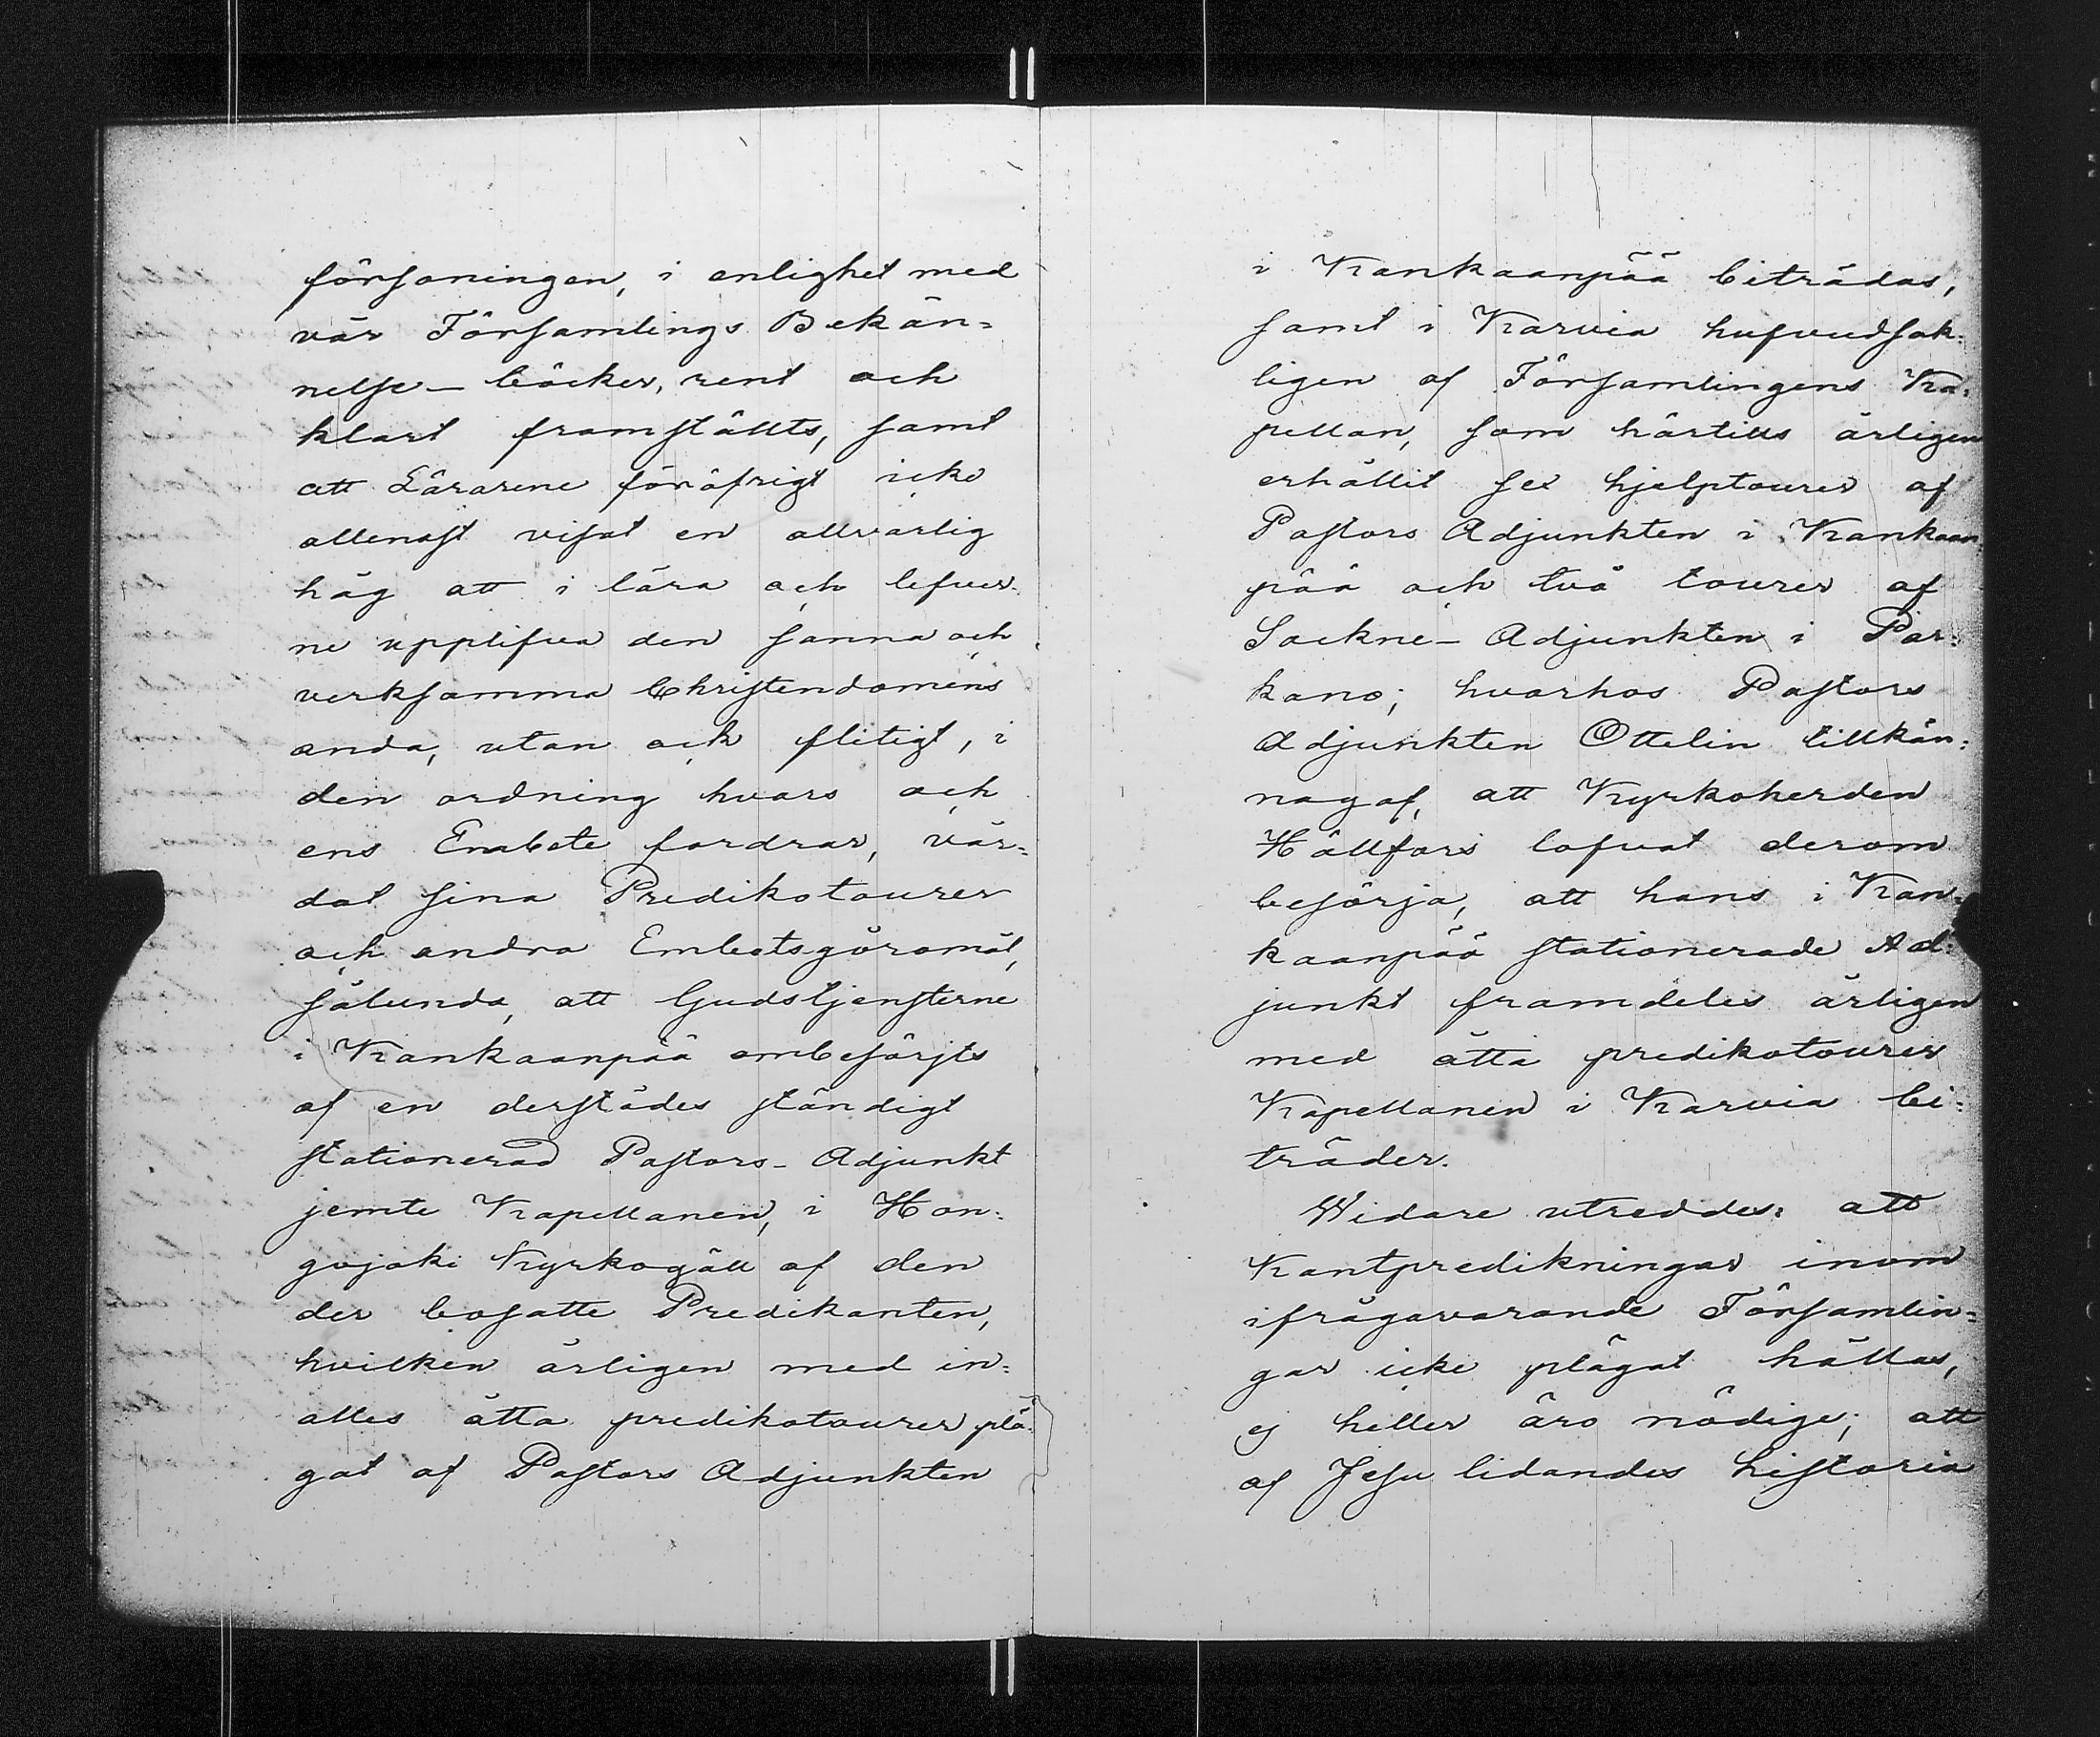 försoningen, i enlighet med
vår Församlings Bekän=
nelse-böcker, rent och
klart framstälts, samt
att Lärarene föröfrigt icke
allenast visat en allvarlig
håg att i lära och lefver-
ne upplifva den sanna och
verksamma Christendomens
anda, utan ock flitigt, i
den ordning hvars och
ens Embete fordrar, vår=
dat sina Predikotourer
och andra Embetsgöromål,
sålunda, att Gudstjensterne
i Kankaanpää ombesörjts
af en derstädes ständigt
stationerad Pastors-Adjunkt
jemte Kapellanen, i Hon=
gojoki Kyrkogäll af den
der bosatte Predikanten,
hvilken årligen med in=
alles åtta predikotourer plä=
gat af Pastors Adjunkten
i Kankaanpää biträdas,
samt i Karvia hufvudsak=
ligen af Församlingens Ka=
pellan, som härtills årligen
erhållit sex hjelptourer af
Pastors Adjunkten i Kankaan=
pää och två tourer af
Sockne-Adjunkten i Par=
kano; hvarhos Pastors
Adjunkten Ottelin tillkän=
nagaf, att Kyrkoherden
Hällfors lofvat derom
besörja, att hans i Kan=
kaanpää stationerade Ad=
junkt framdeles årligen
med åtta predikotourer
Kapellanen i Karvia bi=
träder.
Widare utreddes: att
Kantpredikningar inom
ifrågavarande Församlin=
gar icke plägat hållas,
ej heller äro nödige; att
af Jesu lidandes historia